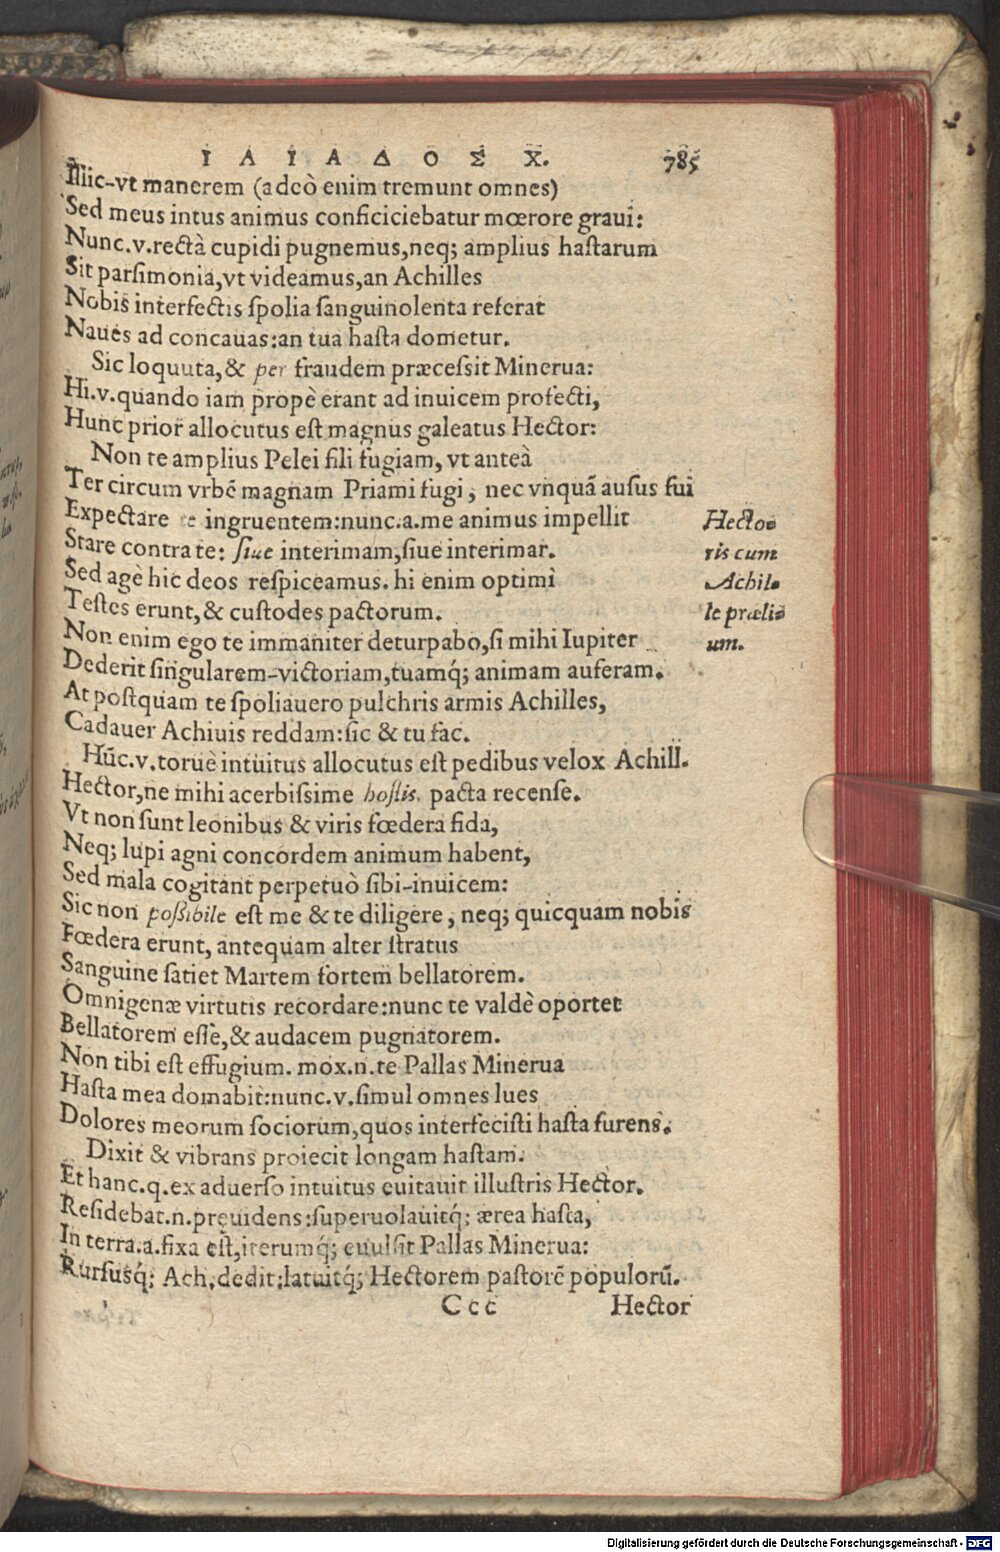 ΙΛΙΑΔΟΣ Χ. 785
Illic-vt manerem (adeò enim tremunt omnes)
Sed meus intus animus conficiciebatur mœrore graui:
Nunc.v.rectà cupidi pugnemus,neq; amplius hastarum
Sit parsimonia,vt videamus,an Achilles
Nobis interfectis spolia sanguinolenta referat
Naues ad concauas:an tua hasta dometur.
Sic loquuta,& per fraudem præcessit Minerua:
Hi.v.quando iam propè erant ad inuicem profecti,
Hunc prior allocutus est magnus galeatus Hector:
Non te amplius Pelei fili fugiam, vt anteà
Ter circum vrbẽ magnam Priami fugi, nec vnquã ausus fui
Expectare te ingruentem:nunc.a.me animus impellit
Stare contra te: siue interimam,siue interimar.
Sed agè hic deos respiceamus. hi enim optimi
Testes erunt,& custodes pactorum.
Non enim ego te immaniter deturpabo,si mihi Iupiter
Dederit singularem-victoriam,tuamq́; animam auferam.
At postquam te spoliauero pulchris armis Achilles,
Cadauer Achiuis reddam:sic & tu fac.
Hũc.v.toruè intuitus allocutus est pedibus velox Achill.
Hector,ne mihi acerbissime hostis. pacta recense.
Vt non sunt leonibus & viris fœdera fida,
Neq; lupi agni concordem animum habent,
Sed mala cogitant perpetuò sibi-inuicem:
Sic non possibile est me & te diligere, neq; quicquam nobis
Fœdera erunt, antequam alter stratus
Sanguine satiet Martem fortem bellatorem.
Omnigenæ virtutis recordare:nunc te valdè oportet
Bellatorem esse,& audacem pugnatorem.
Non tibi est effugium. mox.n.te Pallas Minerua
Hasta mea domabit:nunc.v.simul omnes lues
Dolores meorum sociorum,quos interfecisti hasta furens.
Dixit & vibrans proiecit longam hastam.
Et hanc.q.ex aduerso intuitus euitauit illustris Hector.
Residebat.n.preuidens:superuolauitq́; ærea hasta,
In terra.a.fixa est,iterumq́; euulsit Pallas Minerua:
Rursusq́; Ach.dedit:latuitq́; Hectorem pastorẽ populorũ.
Ccc Hector
Hecto-
ris cum
Achil-
le præli-
um.
Digitalisierung gefördert durch die Deutsche Forschungsgemeinschaft - DFG